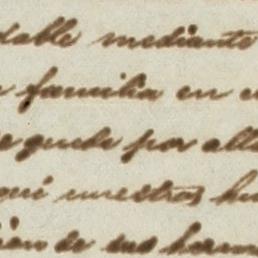 dable mediante
familia en
quede por alla
qui nuestros hu
ion de sus herm